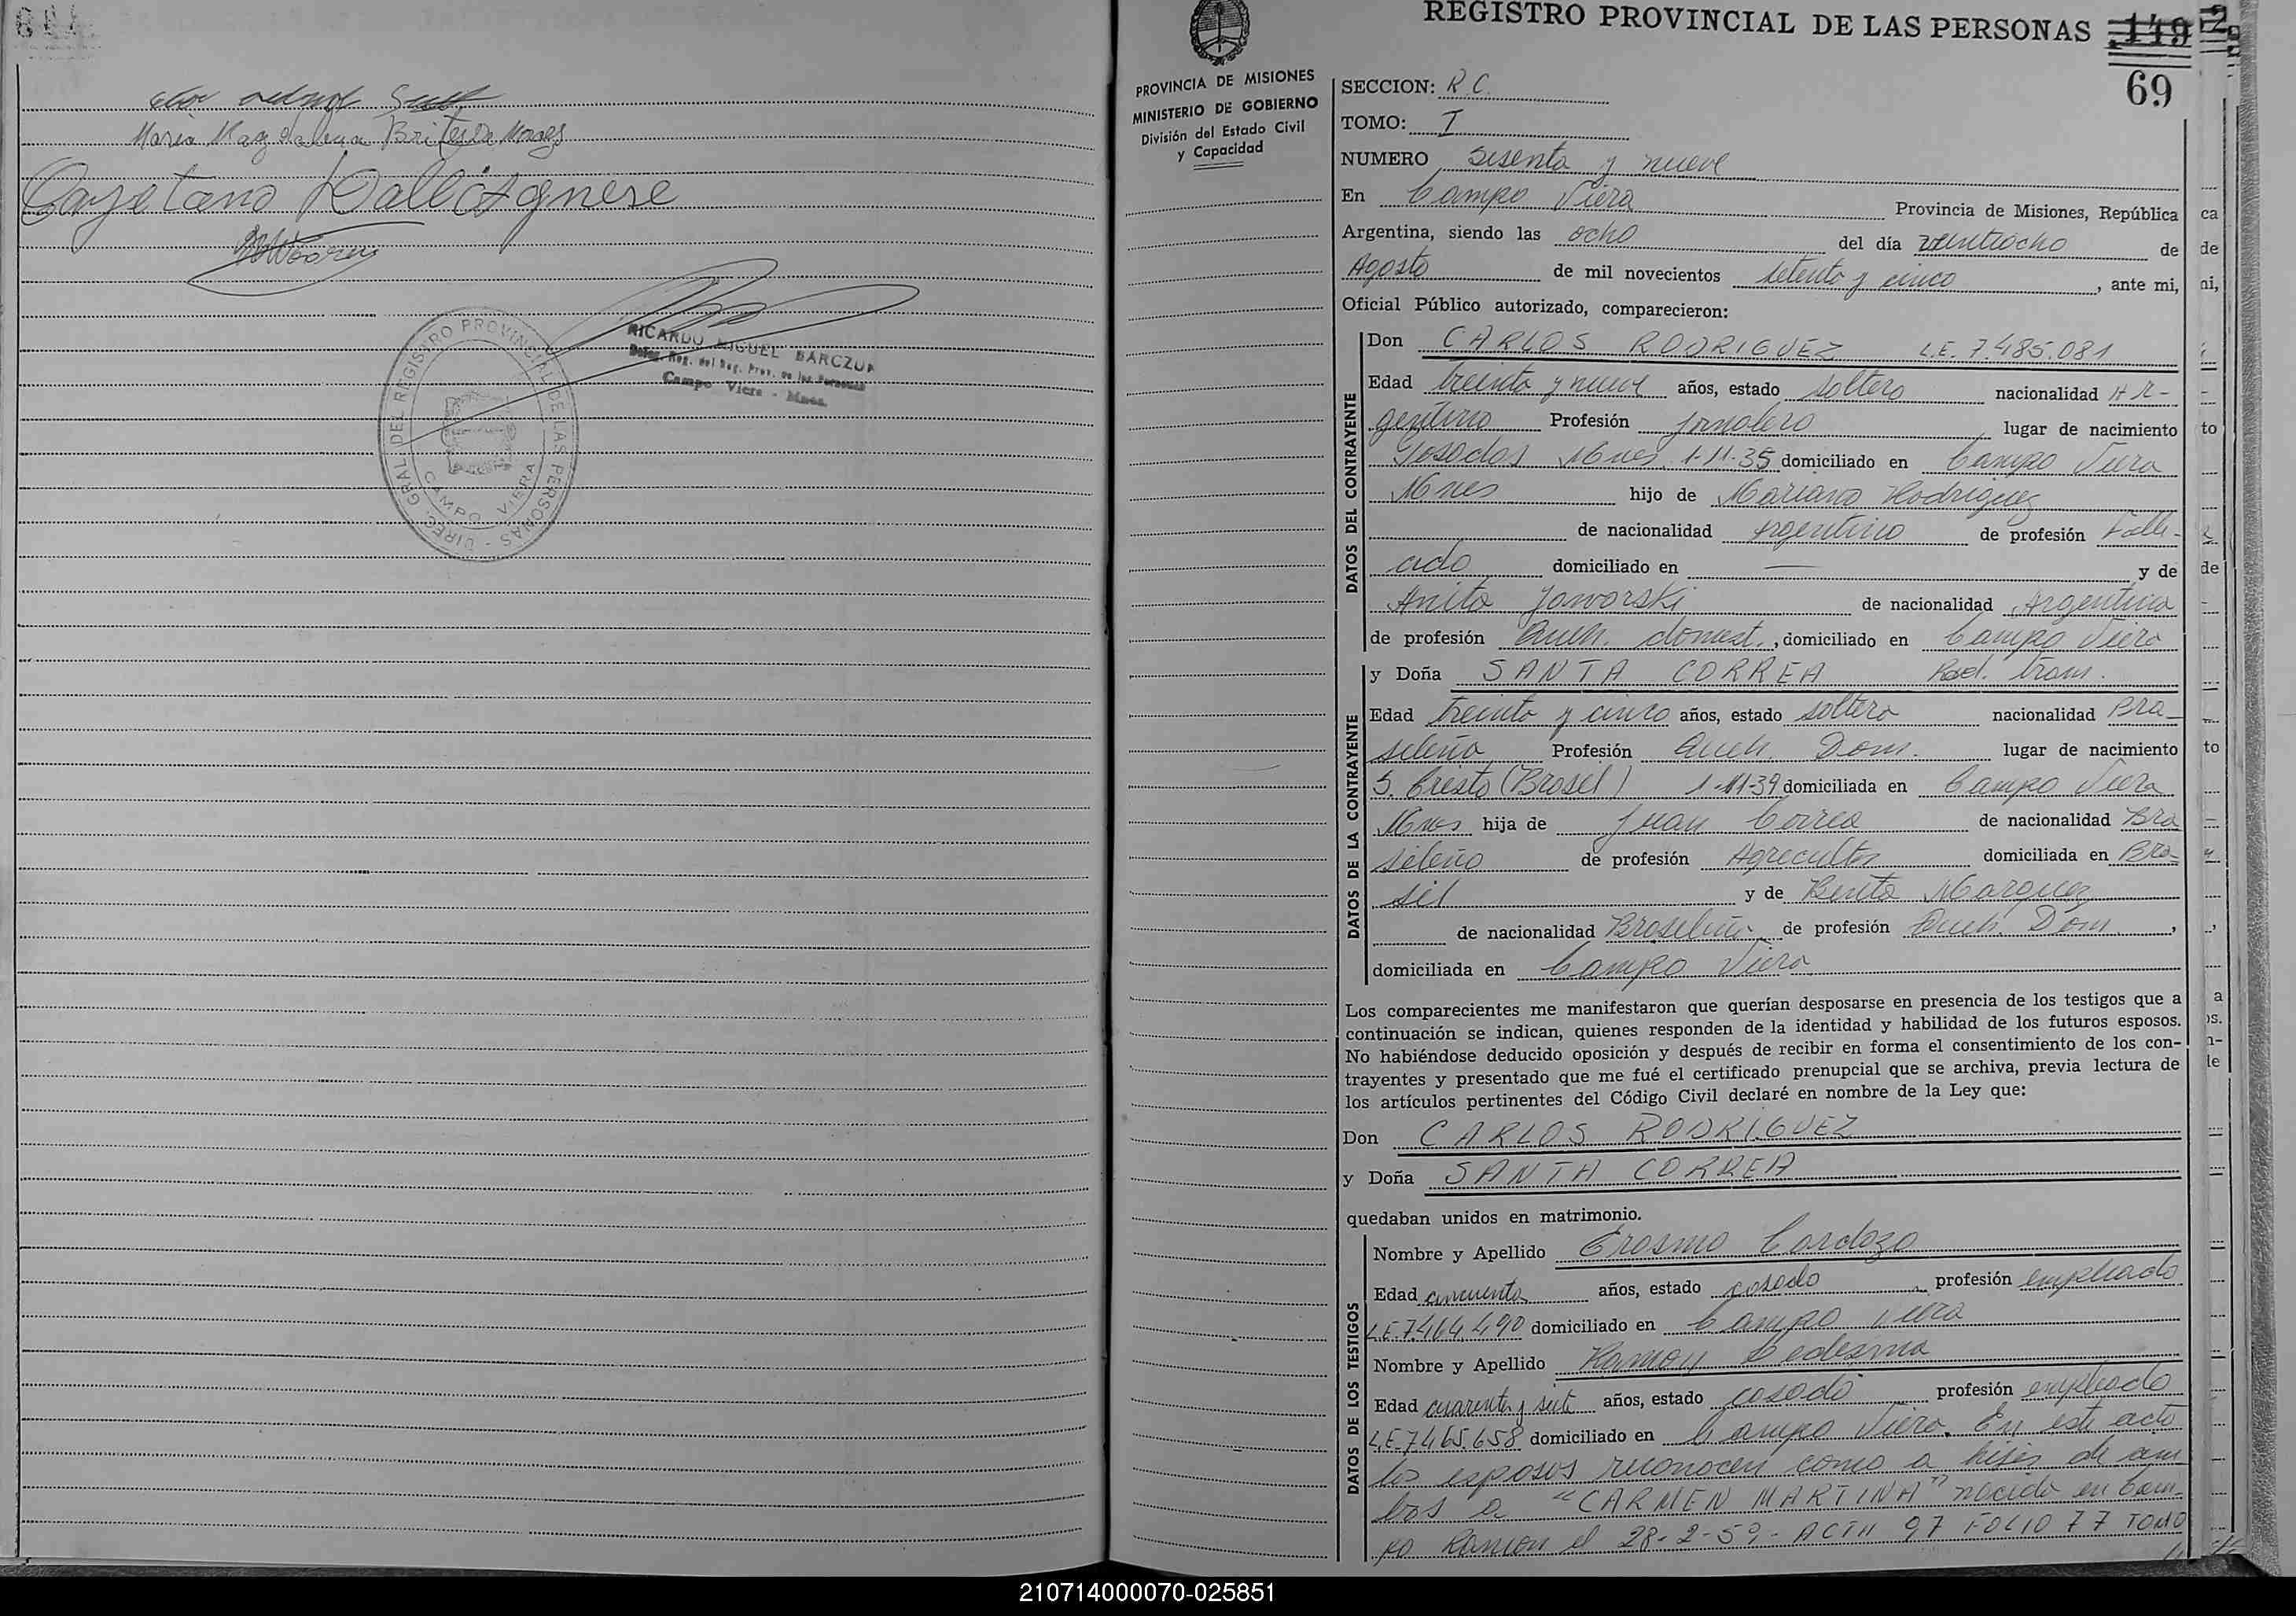 Maria Magdalena Britez Da Moraes
Cayetano Dall'Agnese
RICARDO MIGUEL BARCZUK
Deleg. Reg. del Reg. Prov. de las Personas
Campo Viera - Mnes.
DIREC. GRAL. DEL REGISTRO PROVINCIAL DE LAS PERSONAS -
CAMPO VIERA
REGISTRO PROVINCIAL DE LAS PERSONAS 149
69
PROVINCIA DE MISIONES
MINISTERIO DE GOBIERNO
División del Estado Civil
y Capacidad
SECCION: R C.
TOMO: I
NUMERO sesenta y nueve
En Campo Viera Provincia de Misiones, República
Argentina, siendo las ocho del día veintiocho de
Agosto de mil novecientos setenta y cinco, ante mi,
Oficial Público autorizado, comparecieron:
DATOS DEL CONTRAYENTE
Don CARLOS RODRIGUEZ L.E. 7.485.081
Edad treinta y nueve años, estado soltero nacionalidad Ar-
gentino Profesión Jornalero lugar de nacimiento
Posadas Mnes. 1-11-35 domiciliado en Campo Viera
Mnes hijo de Mariano Rodriguez
de nacionalidad Argentino de profesión Falle-
cido domiciliado en — y de
Anita Jaworski de nacionalidad Argentina
de profesión Queh. domest., domiciliado en Campo Viera
DATOS DE LA CONTRAYENTE
y Doña SANTA CORREA Rad. tram.
Edad treinta y cinco años, estado soltera nacionalidad Bra-
sileña Profesión Queh. Dom. lugar de nacimiento
S. Cristo (Brasil) 1-11-39 domiciliada en Campo Viera
Mnes hija de Juan Correa de nacionalidad Bra
sileño de profesión Agricultor domiciliada en Bra-
sil y de Benta Marquez
de nacionalidad Brasileña de profesión Queh. Dom.,
domiciliada en Campo Viera
Los comparecientes me manifestaron que querían desposarse en presencia de los testigos que a
continuación se indican, quienes responden de la identidad y habilidad de los futuros esposos.
No habiéndose deducido oposición y después de recibir en forma el consentimiento de los con-
trayentes y presentado que me fué el certificado prenupcial que se archiva, previa lectura de
los artículos pertinentes del Código Civil declaré en nombre de la Ley que:
Don CARLOS RODRIGUEZ
y Doña SANTA CORREA
quedaban unidos en matrimonio.
DATOS DE LOS TESTIGOS
Nombre y Apellido Erasmo Cardozo
Edad cincuenta años, estado casado, profesión empleado
L.E. 7.464.490 domiciliado en Campo Viera
Nombre y Apellido Ramon Ledesma
Edad cuarenta y siete años, estado casado profesión empleado
L.E. 7.465.658 domiciliado en Campo Viera. En este acto
los esposos reconocen como a hijos de am
bos a "CARMEN MARTINA" nacida en Cam-
po Ramon el 28-2-59- ACTA 97 FOLIO 77 TOMO
210714000070-025851